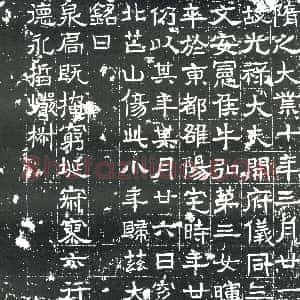 隋之大業十年三月廿一
故光祿大夫開府儀同三
文安憲侯牛第三女暉
卒於東都雒陽宅時年廿
仍以其年其月廿六日窆
北芒山傷此小年歸茲大
銘曰
泉扃既掩窮府寂六行
德永播樹
Shufaziliao.COM